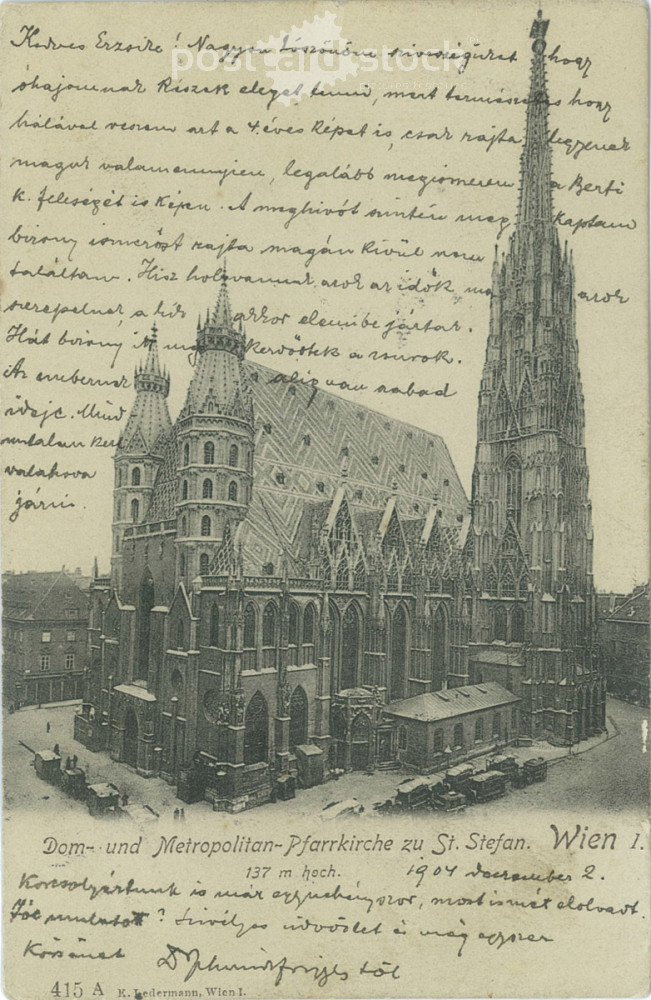 postcard stock
Kedves Erzsike! Nagyon köszönöm szivességüket hogy
óhajomnak készek eleget tenni, mert természetes hogy
hálával veszem azt a 4. éves képet is, csak rajta legyenek
maguk valamennyien, legalább megismerem a Berti
k. feleségét is képen. A meghivót szintén meg kaptam
bizony ismerőst rajta magán kivül nem
találtam. Hisz hol vannak azok az idők, azok
szerepelnek a kik akkor elemibe jártak.
Hát bizony itt meg kezdődtek a zsurok.
Az embernek alig van szabad
ideje. Mind
untalan kell
valahova
járni.
Dom- und Metropolitan-Pfarrkirche zu St. Stefan. Wien I.
137 m hoch.
1904 december 2.
Korcsolyáztunk is már egynehányszor, most ismét elolvadt.
Jól mulatott? Szivélyes üdvözlet és még egyszer
köszönet
415 A K. Ledermann, Wien I.